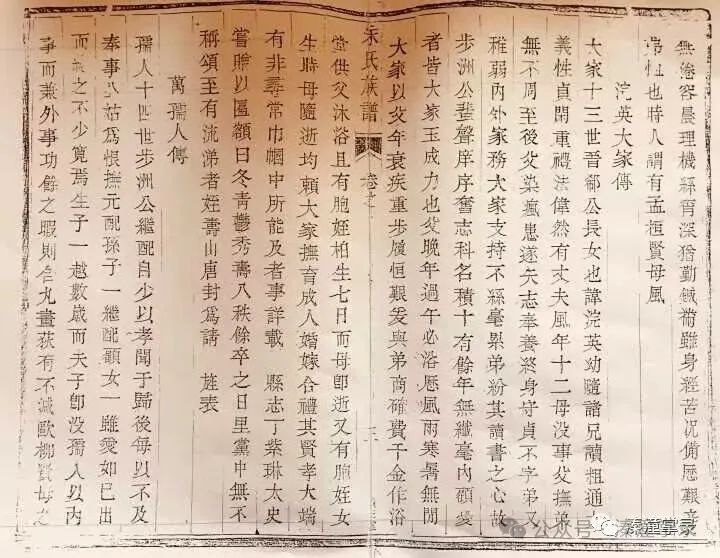 無倦容晨理機絲宵深猶勤鍼黹雖身經苦況備歷艱辛
常恒也時人謂有孟桓賢母風
浣英大家傳
大家十三世晉鄉公長女也諱浣英幼隨諸兄讀粗通大
義性貞閑重禮法偉然有丈夫風年十二母沒事父撫弟
無不周至後父染瘋患遂矢志奉養終身守貞不字弟又
稚弱內外家務大家支持不絲毫累弟紛其讀書之心故
步洲公蜚聲庠序奮志科名積十有餘年無纖毫內顧憂
者皆大家玉成力也父晚年過午必浴歷風雨寒暑無間
大家以父年衰疾重步履恒艱爰與弟商確費千金作浴
朱氏族譜 卷之 三
堂供父沐浴且有胞姪柏生七日而母卽逝又有胞姪女
生時母隨逝均賴大家撫育成人婚嫁合禮其賢孝大端
有非尋常巾幗中所能及者事詳載 縣志丁紫琳太史
嘗贈以匾額曰冬青鬱秀壽八秩餘卒之日里黨中無不
稱頌至有流涕者姪壽山唐封爲請 旌表
萬孺人傳
孺人十四世步洲公繼配自少以孝聞于歸後每以不及
奉事八姑爲恨撫元配孫子一繼配顧女一雖愛如已出
而 之不少寬焉生子一越數歲而夫子卽沒孺人以內
爭而兼外事功餘之暇則 丸畫荻有不減歐柳賢母之
公众号
溱潼掌录